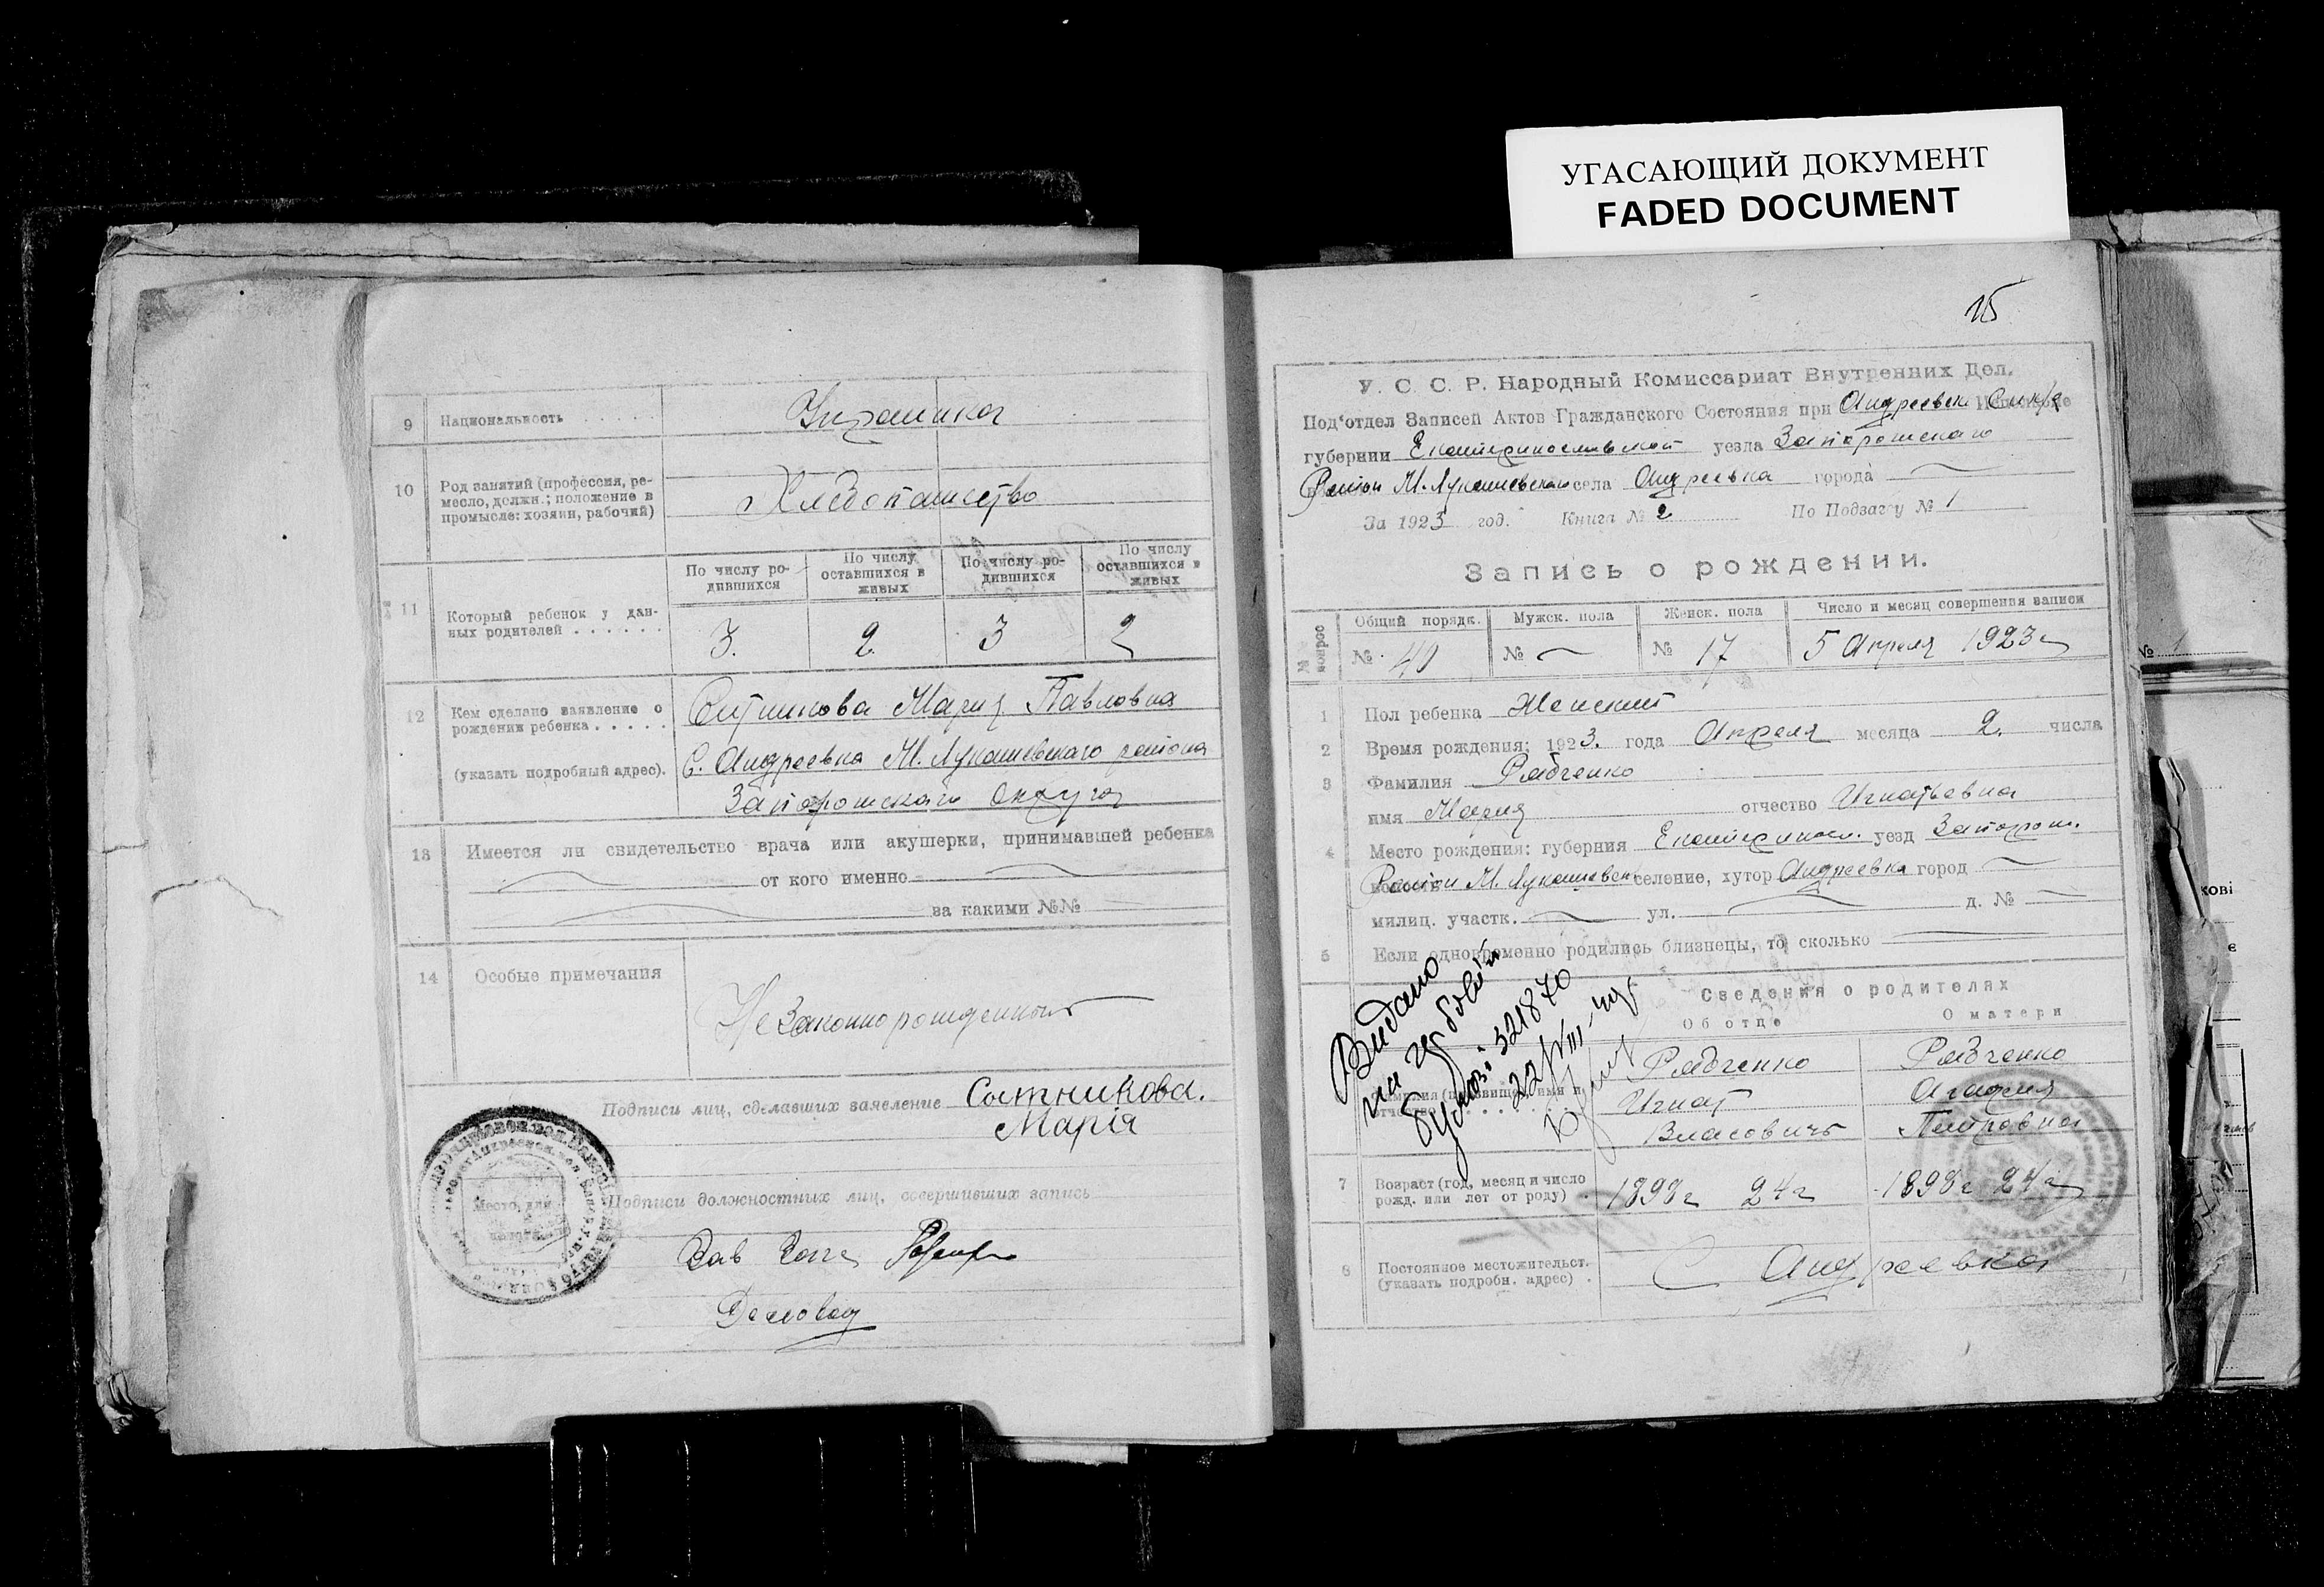 УГАСАЮЩИЙ ДОКУМЕНТ
FADED DOCUMENT
9 Национальность . . . . . . Украинка
10 Род занятий (профессия, ре-
месло, должн.; положение в
промысле: хозяин, рабочий)
Хлебопашество
По числу ро-
дившихся
По числу
оставшихся в
живых
По числу ро-
дившихся
По числу
оставшихся в
живых
11 Который ребенок у дан-
ных родителей . . . . . .
3. 2 3 2
12 Кем сделано заявление о
рождении ребенка . . . . .
(указать подробный адрес).
Ситникова Мария Павловна
С. Андреевка М. Лукашевскаго района
Запорожскаго Округа
13 Имеется ли свидетельство врача или акушерки, принимавшей ребенка
от кого именно
за какими №№
14 Особые примечания
Незаконнорожденный
Подписи лиц, сделавших заявление Сотникова.
Марія
Место для
Подписи должностных лиц, совершивших запись
Деловод
15
У. С. С. Р. Народный Комиссариат Внутренних Дел.
Под'отдел Записей Актов Гражданского Состояния при Андреевск.
губернии Екатеринославской уезла Запорожскаго
Район М. Лукашевской села Андреевка города
За 1923 год. Книга № 2 По Подзагсу № 1
Запись о рождении.
№ вопрос
Общий порядк. Мужск. пола Женск. пола Число и месяц совершения записи
№ 40 № № 17 5 Апреля 1923 г
1 Пол ребенка Женский
2 Время рождения: 1923. года Апреля месяца 2. числа
3 Фамилия Рябченко
имя Мария отчество Игнатьевна
4 Место рождения: губерния Екатеринosл. уезд Запорож.
Район М. Лукашевск селение, хутор Андреевка город
милиц. участк. ул. д. №
5 Если одновременно родились близнецы, то сколько
Сведения о родителях
Об отце О матери
Видано
321870
22/VIII-
отчество
Рябченко
Игнат
Власовичъ
Рябченко
Агафия
Петровна
7 Возраст (год, месяц и число
рожд. или лет от роду) .
1898 г 24 г 1898 г 24 г
8 Постоянное местожительст.
(указать подробн. адрес) .
С Андреевка
№ 1
кові
є